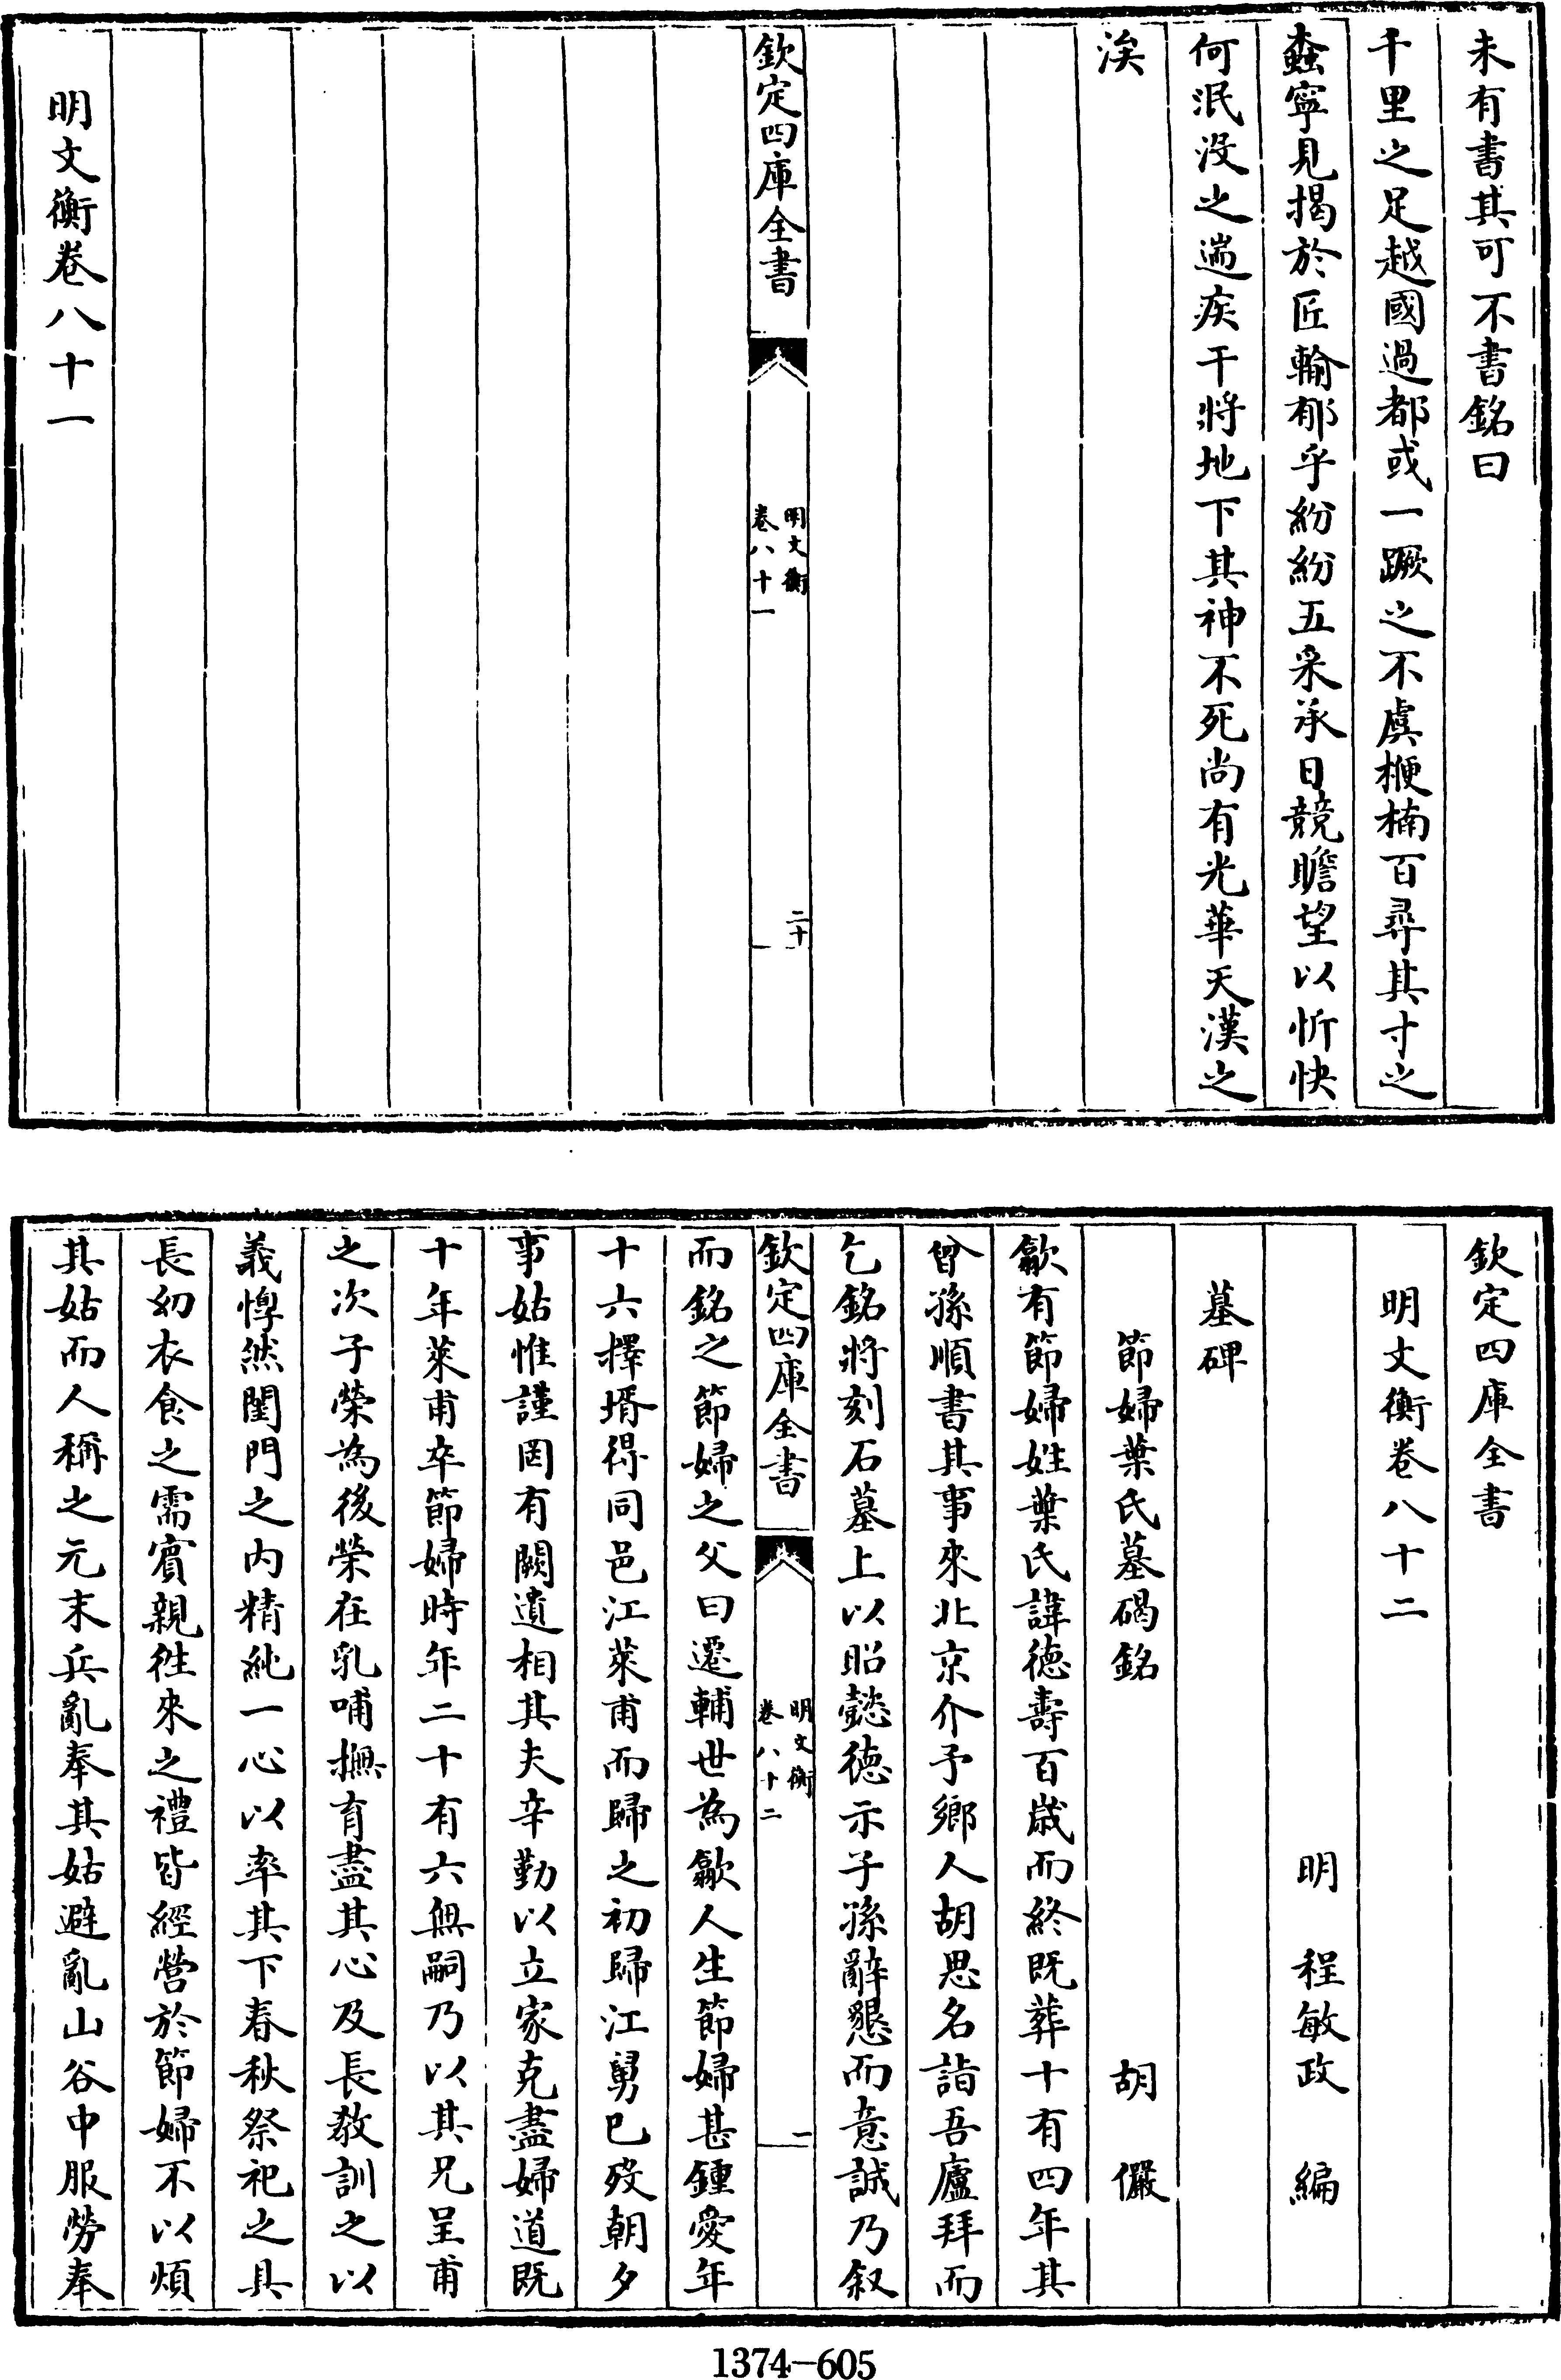 未有書其可不書銘曰
千里之足越國過都或一蹶之不虞楩楠百尋其寸之
蠧寧見揭於匠輸郁乎紛紛五采承日競瞻望以忻快
何泯沒之遄疾干將地下其神不死尚有光華天漢之
涘
欽定四庫全書
明文衡
卷八十一
二十
明文衡卷八十一
欽定四庫全書
明文衡卷八十二
明 程敏政 編
墓碑
節婦葉氏墓碣銘 胡儼
歙有節婦姓葉氏諱德壽百歲而終既葬十有四年其
曾孫順書其事來北京介予鄉人胡思名詣吾廬拜而
乞銘將刻石墓上以昭懿德示子孫辭懇而意誠乃叙
欽定四庫全書
明文衡
卷八十二
一
而銘之節婦之父曰遷輔世為歙人生節婦甚鍾愛年
十六擇壻得同邑江萊甫而歸之初歸江舅已歿朝夕
事姑惟謹罔有闕遺相其夫辛勤以立家克盡婦道既
十年萊甫卒節婦時年二十有六無嗣乃以其兄呈甫
之次子榮為後榮在乳哺撫育盡其心及長教訓之以
義惸然閨門之内精純一心以率其下春秋祭祀之具
長幼衣食之需賓親徃來之禮皆經營於節婦不以煩
其姑而人稱之元末兵亂奉其姑避亂山谷中服勞奉
1374-605